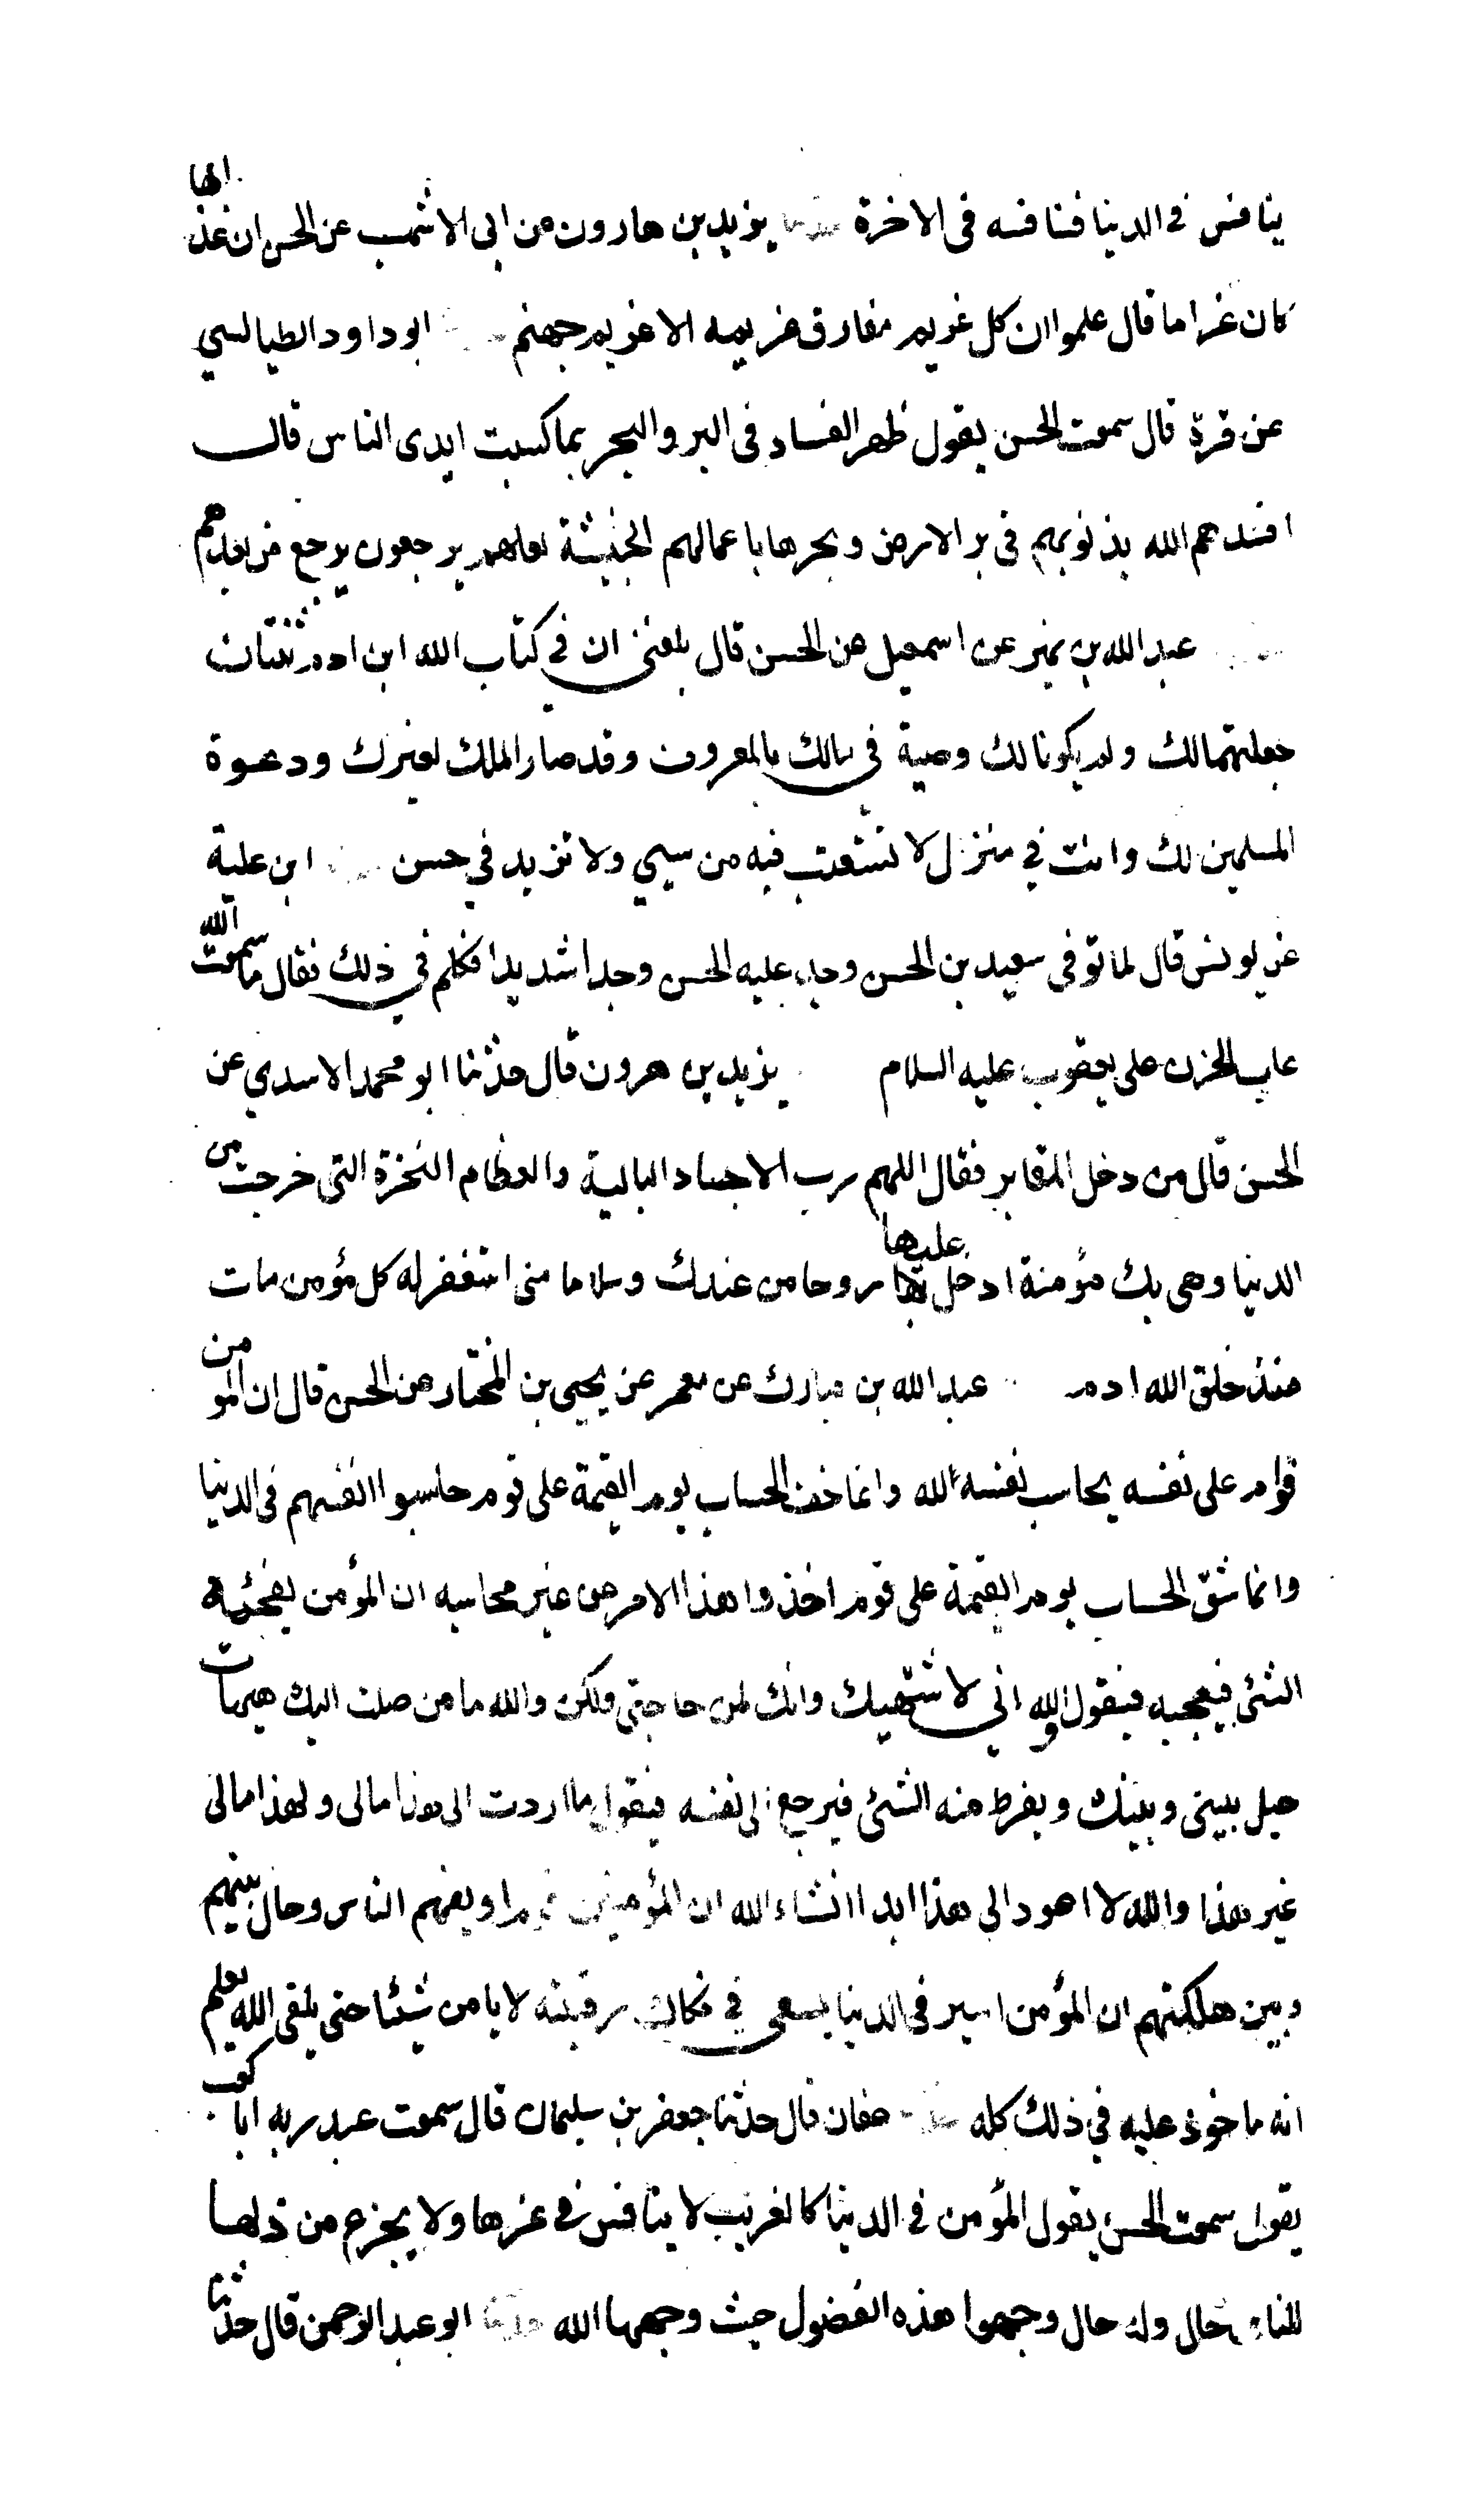 ينافس في الدنيا فنافسه في الاخرة حدثنا يزيد بن هارون عن ابي الاشهب عن الحسن ان عذابها
كان غراما قال علموا ان كل غريم مفارق غريمه الا غريم جهنم ابو داود الطيالسي
عن قرة قال سمعت الحسن يقول ظهر الفساد في البر والبحر بما كسبت ايدي الناس قال
افسدهم الله بذنوبهم في بر الارض وبحرها باعمالهم الخبيثة لعلهم يرجعون يرجع من بعدهم
عبد الله بن نمير عن اسمعيل عن الحسن قال بلغني ان في كتاب الله ابن ادم ثنتان
جعلتهما لك ولم يكونا لك وصية في مالك بالمعروف وقد صار الملك لغيرك ودعوة
المسلمين لك وانت في منزل لا تستعتب فيه من سيئ ولا تزيد في حسن ابن علية
عن يونس قال لما توفي سعيد بن الحسن وجد عليه الحسن وجدا شديدا فكلم في ذلك فقال ما سمعت الله
عاب الحزن على يعقوب عليه السلام يزيد بن هرون قال حدثنا ابو محمد الاسدي عن
الحسن قال من دخل المقابر فقال اللهم رب الاجساد البالية والعظام النخرة التي خرجت من
الدنيا وهي بك مؤمنة ادخل عليها روحا من عندك وسلاما مني استغفر له كل مؤمن مات
منذ خلق الله ادم عبد الله بن مبارك عن معمر عن يحيى بن المختار عن الحسن قال ان المؤمن
قوام على نفسه يحاسب نفسه لله وانما خف الحساب يوم القيمة على قوم حاسبوا انفسهم في الدنيا
وانما شق الحساب يوم القيمة على قوم اخذوا هذا الامر من غير محاسبه ان المؤمن يفجئه
الشئ فيعجبه فيقول والله اني لا شتهيك وانك لمن حاجتي ولكن والله ما من صلت اليك هيهات
حيل بيني وبينك ويفرط منه الشئ فيرجع الى نفسه فيقول ما اردت الى هذا مالي ولهذا مالي
غير هذا والله لا اعود الى هذا ابدا انشاء الله ان المؤمنين قوم اويقهم الناس وحال بينهم
وبين هلكتهم ان المؤمن اسير في الدنيا يسعى في فكاك رقبته لا يامن شيئا حتى يلقى الله يعلم
انه ماخوذ عليه في ذلك كله عفان قال حدثنا جعفر بن سليمان قال سمعت عبد ربه ابا كعب
يقول سمعت الحسن يقول المؤمن في الدنيا كالغريب لا ينافس في عزها ولا يجزع من ذلها
للناس حال وله حال وجهوا هذه الفضول حيث وجهها الله حدثنا ابو عبد الرحمن قال حدثنا